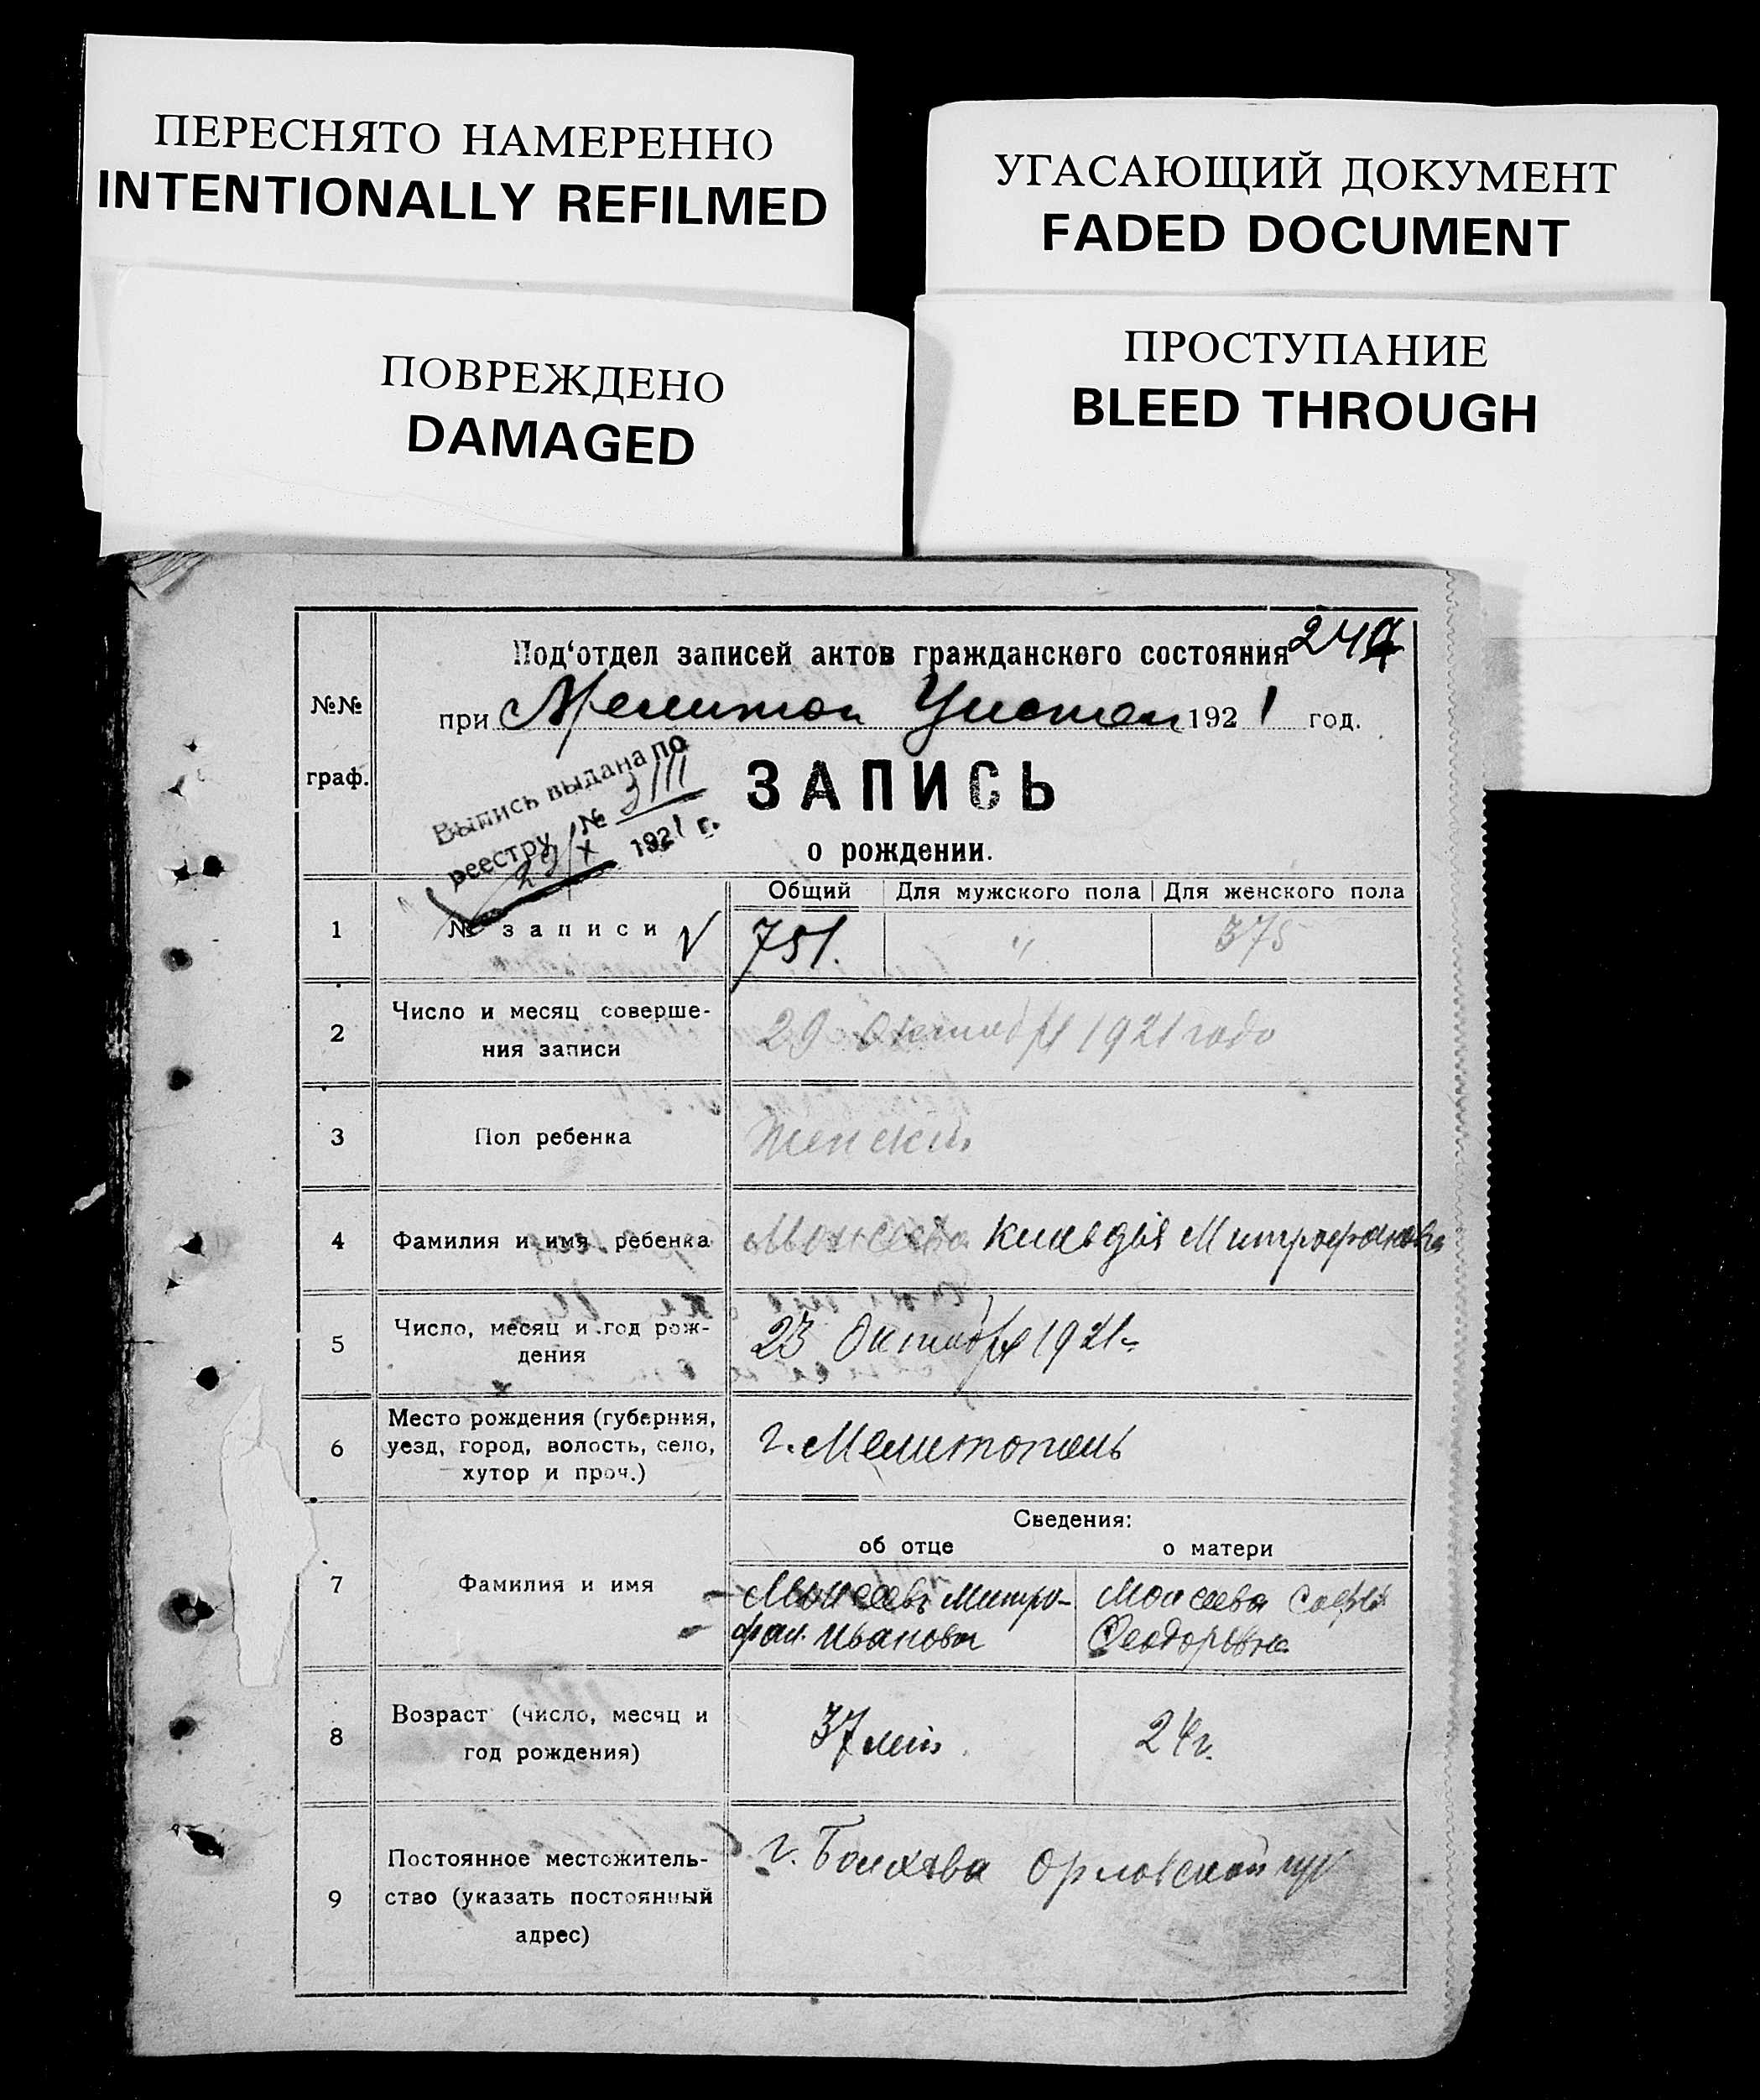 ПЕРЕСНЯТО НАМЕРЕННО
INTENTIONALLY REFILMED
УГАСАЮЩИЙ ДОКУМЕНТ
FADED DOCUMENT
ПОВРЕЖДЕНО
DAMAGED
ПРОСТУПАНИЕ
BLEED THROUGH
№№ граф.
Под'отдел записей актов гражданского состояния
при 1921 год.
Выпись выдана по
реестру № 3111
29/X 1921 г.
ЗАПИСЬ
о рождении.
Общий Для мужского пола Для женского пола
1 № записи 751. " 375
2 Число и месяц соверше-
ния записи 29 Октября 1921 года
3 Пол ребенка Женский
4 Фамилия и имя ребенка Моисеева Клавдія Митрофанова
5 Число, месяц и год рож-
дения 23 Октября 1921 г
6 Место рождения (губерния,
уезд, город, волость, село,
хутор и проч.) г. Мелитополь
Сведения:
об отце о матери
7 Фамилия и имя
Моисеевъ Митро-
фан Иванович
Моисеева Софья
Феодоровна
8 Возраст (число, месяц и
год рождения) 37 летъ 24 г.
9 Постоянное местожитель-
ство (указать постоянный
адрес) г. Болхова Орловской губ